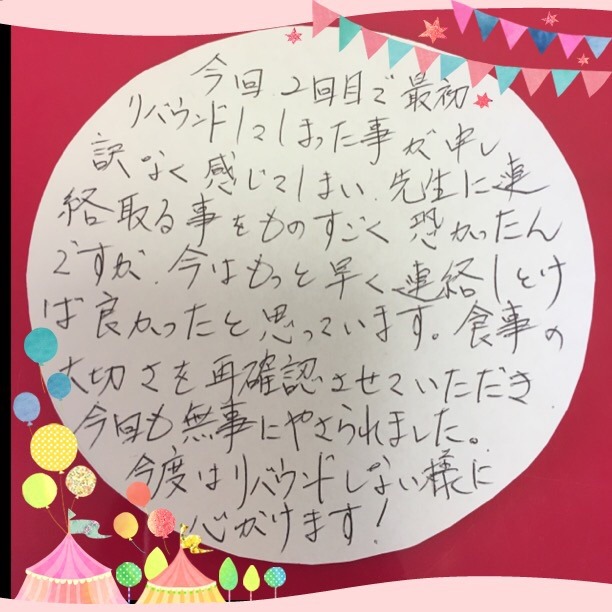 今回、2回目で最初
リバウンドしてしまった事が申し
訳なく感じてしまい、先生に連
絡取る事をものすごく恐かったん
ですが、今はもっと早く連絡しとけ
ば良かったと思っています。食事の
大切さを再確認させていただき
今回も無事にやさられました。
今度はリバウンドしない様に
心がけます!